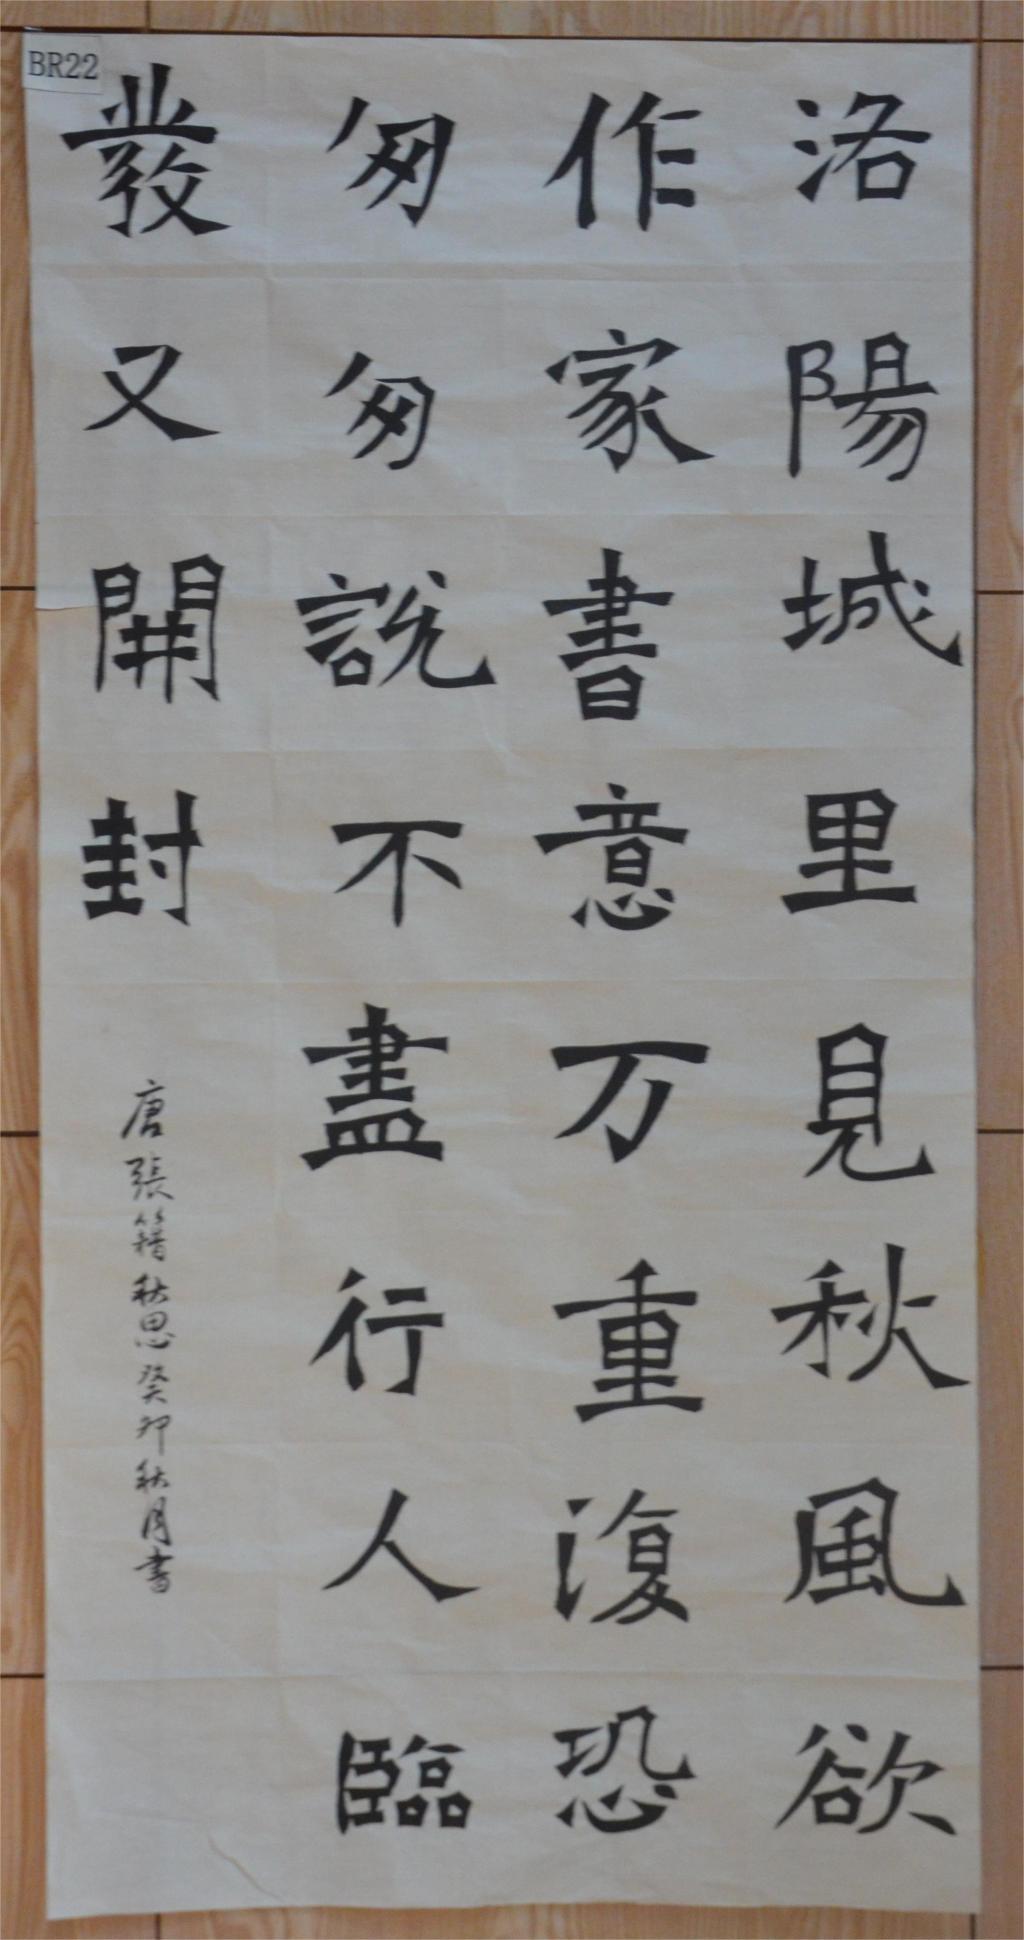 BR22
洛陽城里見秋風欲
作家書意万重復恐
匆匆說不盡行人臨
發又開封
唐張籍秋思癸卯秋月書